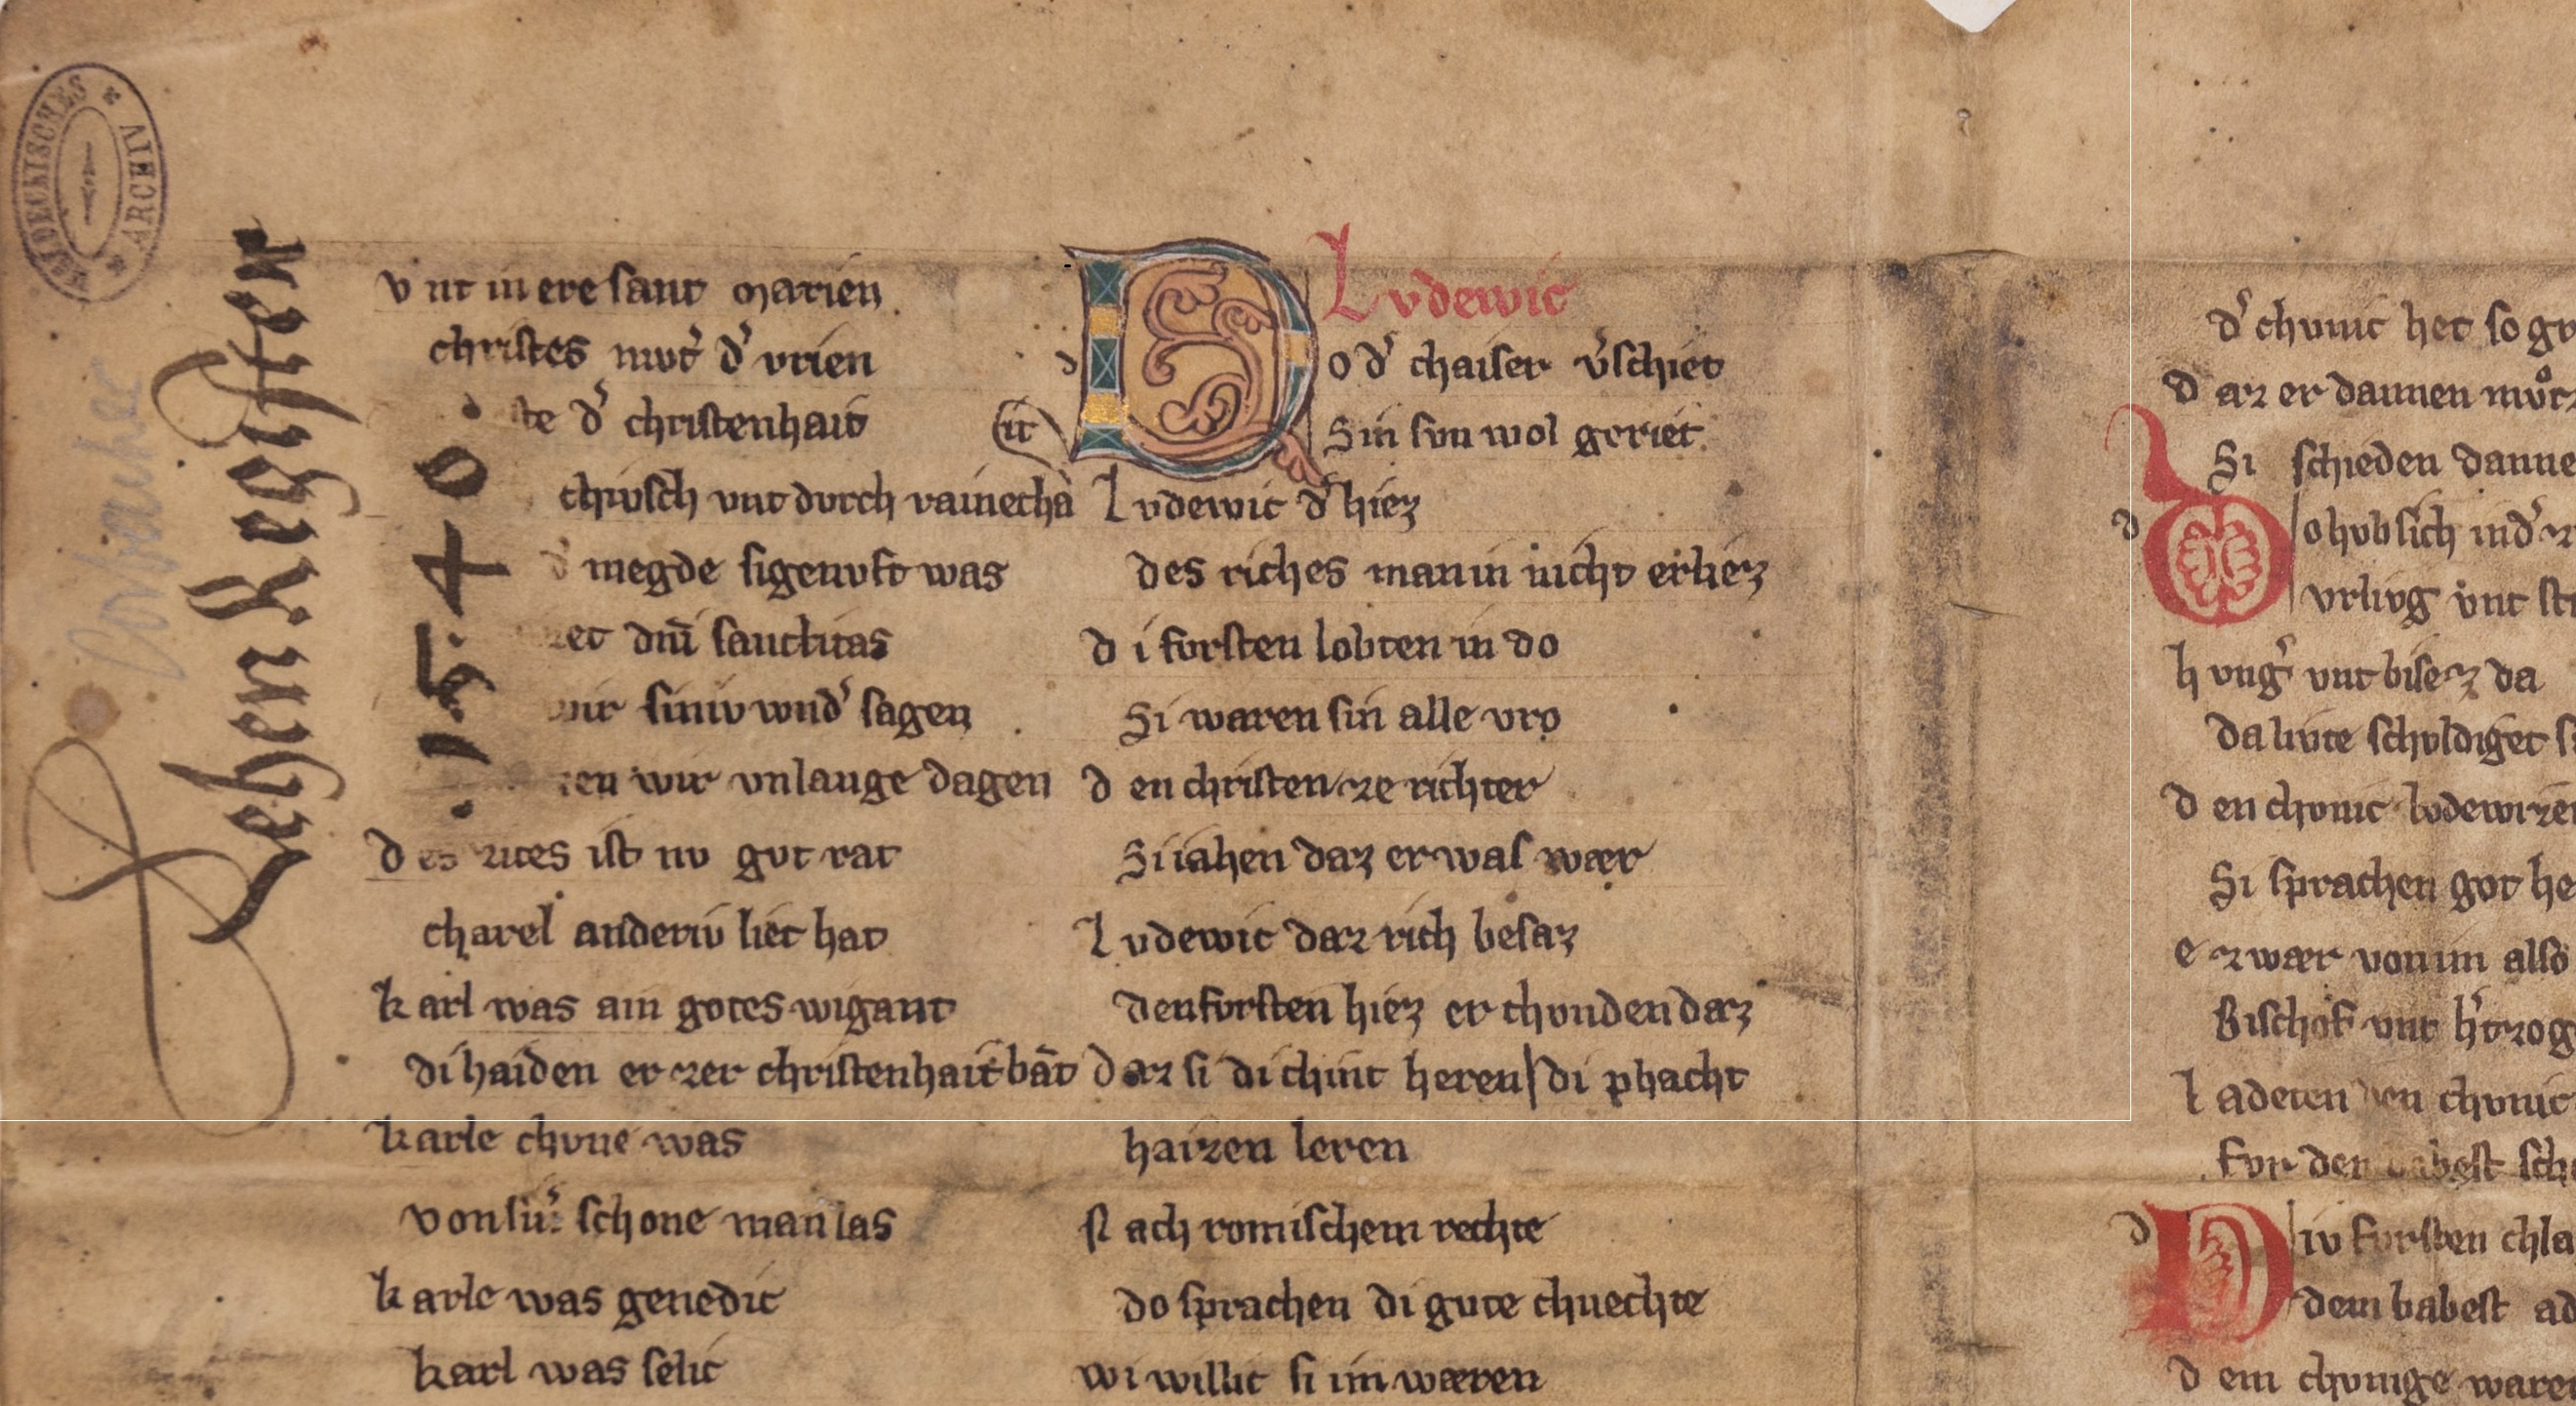 v nt in ere sant marien
christes mvot' d' vrien
te d' christenhait
chivsch vnt dvrch rainechā
d' megde sigenvft was
et dnī sanctitas
wir siniv wnd' sagen
en wir vnlange dagen
d es zites ist nv gvt rat
charel anderiv liet hat
k arl was ain gotes wigant
di haiden er zer christenhait bāt
k arle chvne was
von siū schone man las
k arle was genedic
karl was selic
Lvdewic
o d' chaiser v'schiet
Sin svn wol geriet
L vdewic d' hiez
des riches man in nicht erliez
d i fvrsten lobten in do
Si waren sin alle vro
d en christen ze richter
Si iahen daz er wal wær
L vdewic daz rich besaz
den fvrsten hiez er chvnden daz
d az si di chint heren di phacht
haizen leren
N ach romischem rechte
do sprachen di gvte chnechte
Wi willic si im wæren
d' chvnic het so gr
d az er dannen mvͦz
Si schieden danne
o hvb sich in d' z
vrlivg vnt st
h vng' vnt bisez da
da livte schvldiget s
d en chvnic lvdewizen
Si sprachen got he
e z wær von im also
Bischof vnt h'tzog
l adeten den chvnic
fvr den babest sch
iv fvrsten chla
dem babest ad
d em chvnige waren
Lehen Register
.1.5.4.0.
ARCHIV